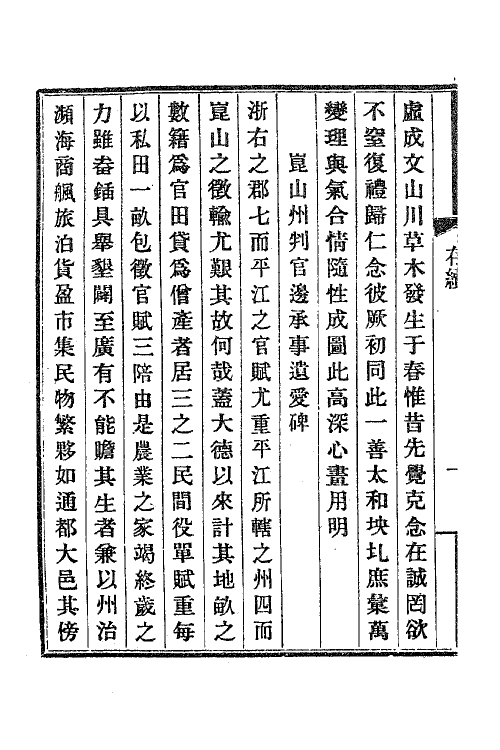 虛成文山川草木發生于春惟昔先覺克念在誠罔欲
不窒復禮歸仁念彼厥初同此一善太和坱圠庶彙萬
變理與氣合情隨性成圖此高深心畫用明
崑山州判官邊承事遺愛碑
浙右之郡七而平江之官賦尤重平江所轄之州四而
崑山之徵輸尤艱其故何哉蓋大德以來計其地畝之
數籍爲官田貸爲僧產者居三之二民間役單賦重每
以私田一畝包徵官賦三陪由是農業之家竭終歲之
力雖畚鍤具舉墾闢至廣有不能贍其生者兼以州治
瀕海商颿旅泊貨盈市集民物繁夥如通都大邑其傍